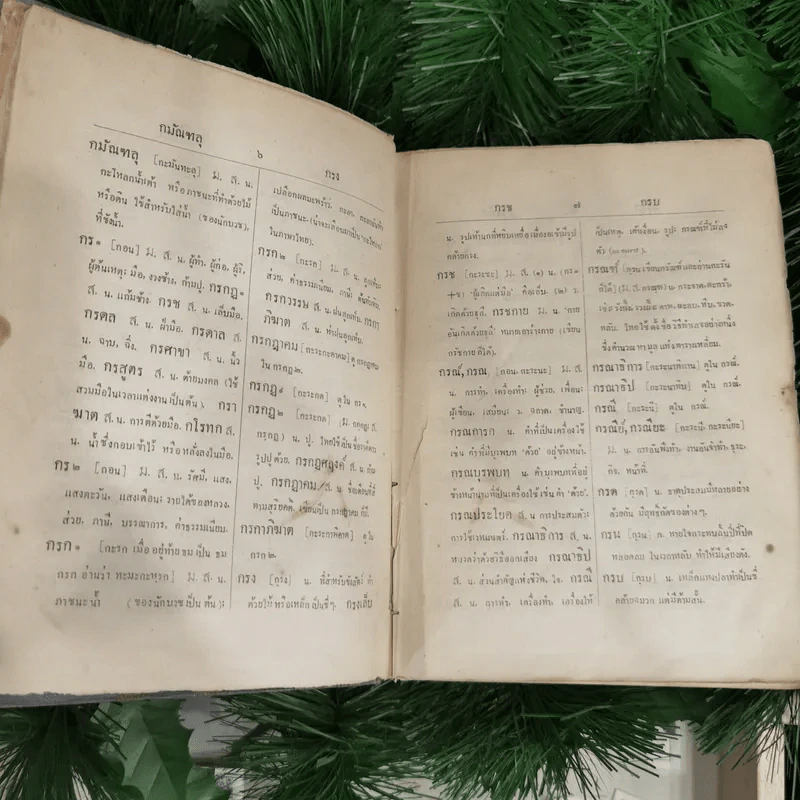 กมัณฑลุ
๖
กรง
กมัณฑลุ [กะมันทะลุ] ม. ส. น.
กะโหลกน้ำเต้า หรือภาชนะที่ทำด้วยไม้
หรือดิน ใช้สำหรับใส่น้ำ (ของนักบวช),
ที่ขังน้ำ.
กร ๑ [กอน] ม. ส. น. ผู้ทำ, ผู้ก่อ, ผู้รี,
ผู้ต้นเหตุ; มือ, งวงช้าง, ก้ามปู. กรกฎ ๑
ส. น. แก้มช้าง. กรช ส. น. เล็บมือ.
กรตล ส. น. ฝ่ามือ. กรตาล ส.
น. ฉาบ, ฉิ่ง. กรศาขา ส. น. นิ้ว
มือ. กรสูตร ส. น. ด้ายมงคล (ใช้
สวมมือในเวลาแต่งงานเป็นต้น). กรา
ฆาต ส. น. การตีด้วยมือ. กโรทก ส.
น. น้ำซึ่งกอบเข้าไว้ หรือหลั่งลงในมือ.
กร ๒ [กอน] ม. ส. น. รัศมี, แสง,
แสงตะวัน, แสงเดือน; รายได้ของหลวง,
ส่วย, ภาษี, บรรณาการ, ค่าธรรมเนียม.
กรก ๑ [กะรก เมื่ออยู่ท้าย ธม เป็น ธม
กรก อ่านว่า ทะมะกะหฺรก] ม. ส. น.
ภาชนะน้ำ (ของนักบวชเป็นต้น);
เปลือกผลมะพร้าว,
เป็นภาชนะ.
ในภาษาไทย).
กรก ๒ [กะรก] ม. ส. น.
ส่วย, ค่าธรรมเนียม, ภาษี;
กรกวรรษ ส. น. ฝนลูกเห็บ. กรกา
ภิฆาต ส. น. ห่าฝนลูกเห็บ.
กรกฎาคม [กะระกะดาคม] ดู กรกฎาคม
ใน กรกฎ ๒.
กรกฎ ๑ [กะระกด] ดูใน กร ๑.
กรกฎ ๒ [กะระกด] [ม. กกฺกฏ; ส.
กรฺกฏ] น. ปู,
รูปปูด้วย. กรกฎศฤงค์ ส. น. ก้าม
ปู. กรกฎาคม ส. น. ชื่อเดือนที่
ตามสุริยคติ, เขียนเป็น กรกฎาคม ก็มี.
กรกาภิฆาต [กะระกาพิคาด] ดูใน
กรก ๒.
กรง [กฺรง] น. ที่สำหรับขังสัตว์ ทำ
ด้วยไม้ หรือเหล็กเป็นซี่ๆ. กรงเล็บ
กรช
๗
กรบ
น. รูปเท้านกที่หยิบเหยื่อ เมื่องอเข้ามีรูป
คล้ายกรง.
กรช [กะระชะ] ม. ส. (๑) น. (กร ๑
+ช) 'ผู้เกิดแต่มือ' คือเล็บ. (๒) ว.
เกิดด้วยธุลี. กรชกาย ม. น. 'กาย
อันเกิดด้วยธุลี' หมายเอาร่างกาย (เขียน
กรัชกาย ก็ได้).
กรณ์, กรณ [กอน, กะระนะ] ม. ส.
น. การทำ, เครื่องทำ; ผู้ช่วย, เพื่อน;
ผู้เขียน, เสมียน; ว. ฉลาด, ชำนาญ.
กรณการก น. คำที่เป็นเครื่องใช้
เช่น คำที่มีบุรพบท 'ด้วย' อยู่ข้างหน้า.
กรณบุรพบท น. คำบุรพบทที่อยู่
ข้างหน้านามที่เป็นเครื่องใช้ เช่น คำ 'ด้วย'.
กรณประโยค ส. น. การประสมตัว;
การใช้เวทมนตร์. กรณาธิการ ส. น.
หมวดว่าด้วยวิธีออกเสียง กรณาธิป
ส. น. ส่วนสำคัญแห่งชีวิต, ใจ. กรณี
ส. น. การทำ, เครื่องทำ, เครื่องใช้
เป็นเหตุ, เค้าเงื่อน, รูป; กรณฑ์ที่ไม้ลง
ตัว
กรณฑ์ [กฺรน เขียนกรัณฑ์และอ่านกะรัน
ก็ได้] (ม. ส. กรณฺฑ) น. กระจาด, ตะกร้า,
หลับ. ไทยใช้ ตั้งชื่อ วิธีทำเลขอย่างหนึ่ง
ซึ่งคำนวณหามูลแห่งตารางเหลี่ยม.
กรณาธิการ [กะระนาทิกาน] ดูใน กรณ์.
กรณาธิป [กะระนาทิบ] ดูใน กรณ์.
กรณี [กะระนี] ดูใน กรณ์.
กรณีย์, กรณียะ [กะระนี, กะระนียะ]
ม. น. การอันพึงทำ, งานอันจำทำ, ธุระ,
กิจ, หน้าที่.
กรด [กฺรด] น. ธาตุประสมมีหลายอย่าง
ด้วยกัน มีฤทธิ์กัดของต่างๆ.
กรน [กฺรน] ก. หายใจกระทบลิ้นปี่ที่ปิด
หลอดลม ในเวลาหลับ ทำให้มีเสียงดัง.
กรบ [กฺรบ] น. เหล็กแทงปลาทำเป็นซี่
คล้ายฉมวก แต่มีด้ามสั้น.